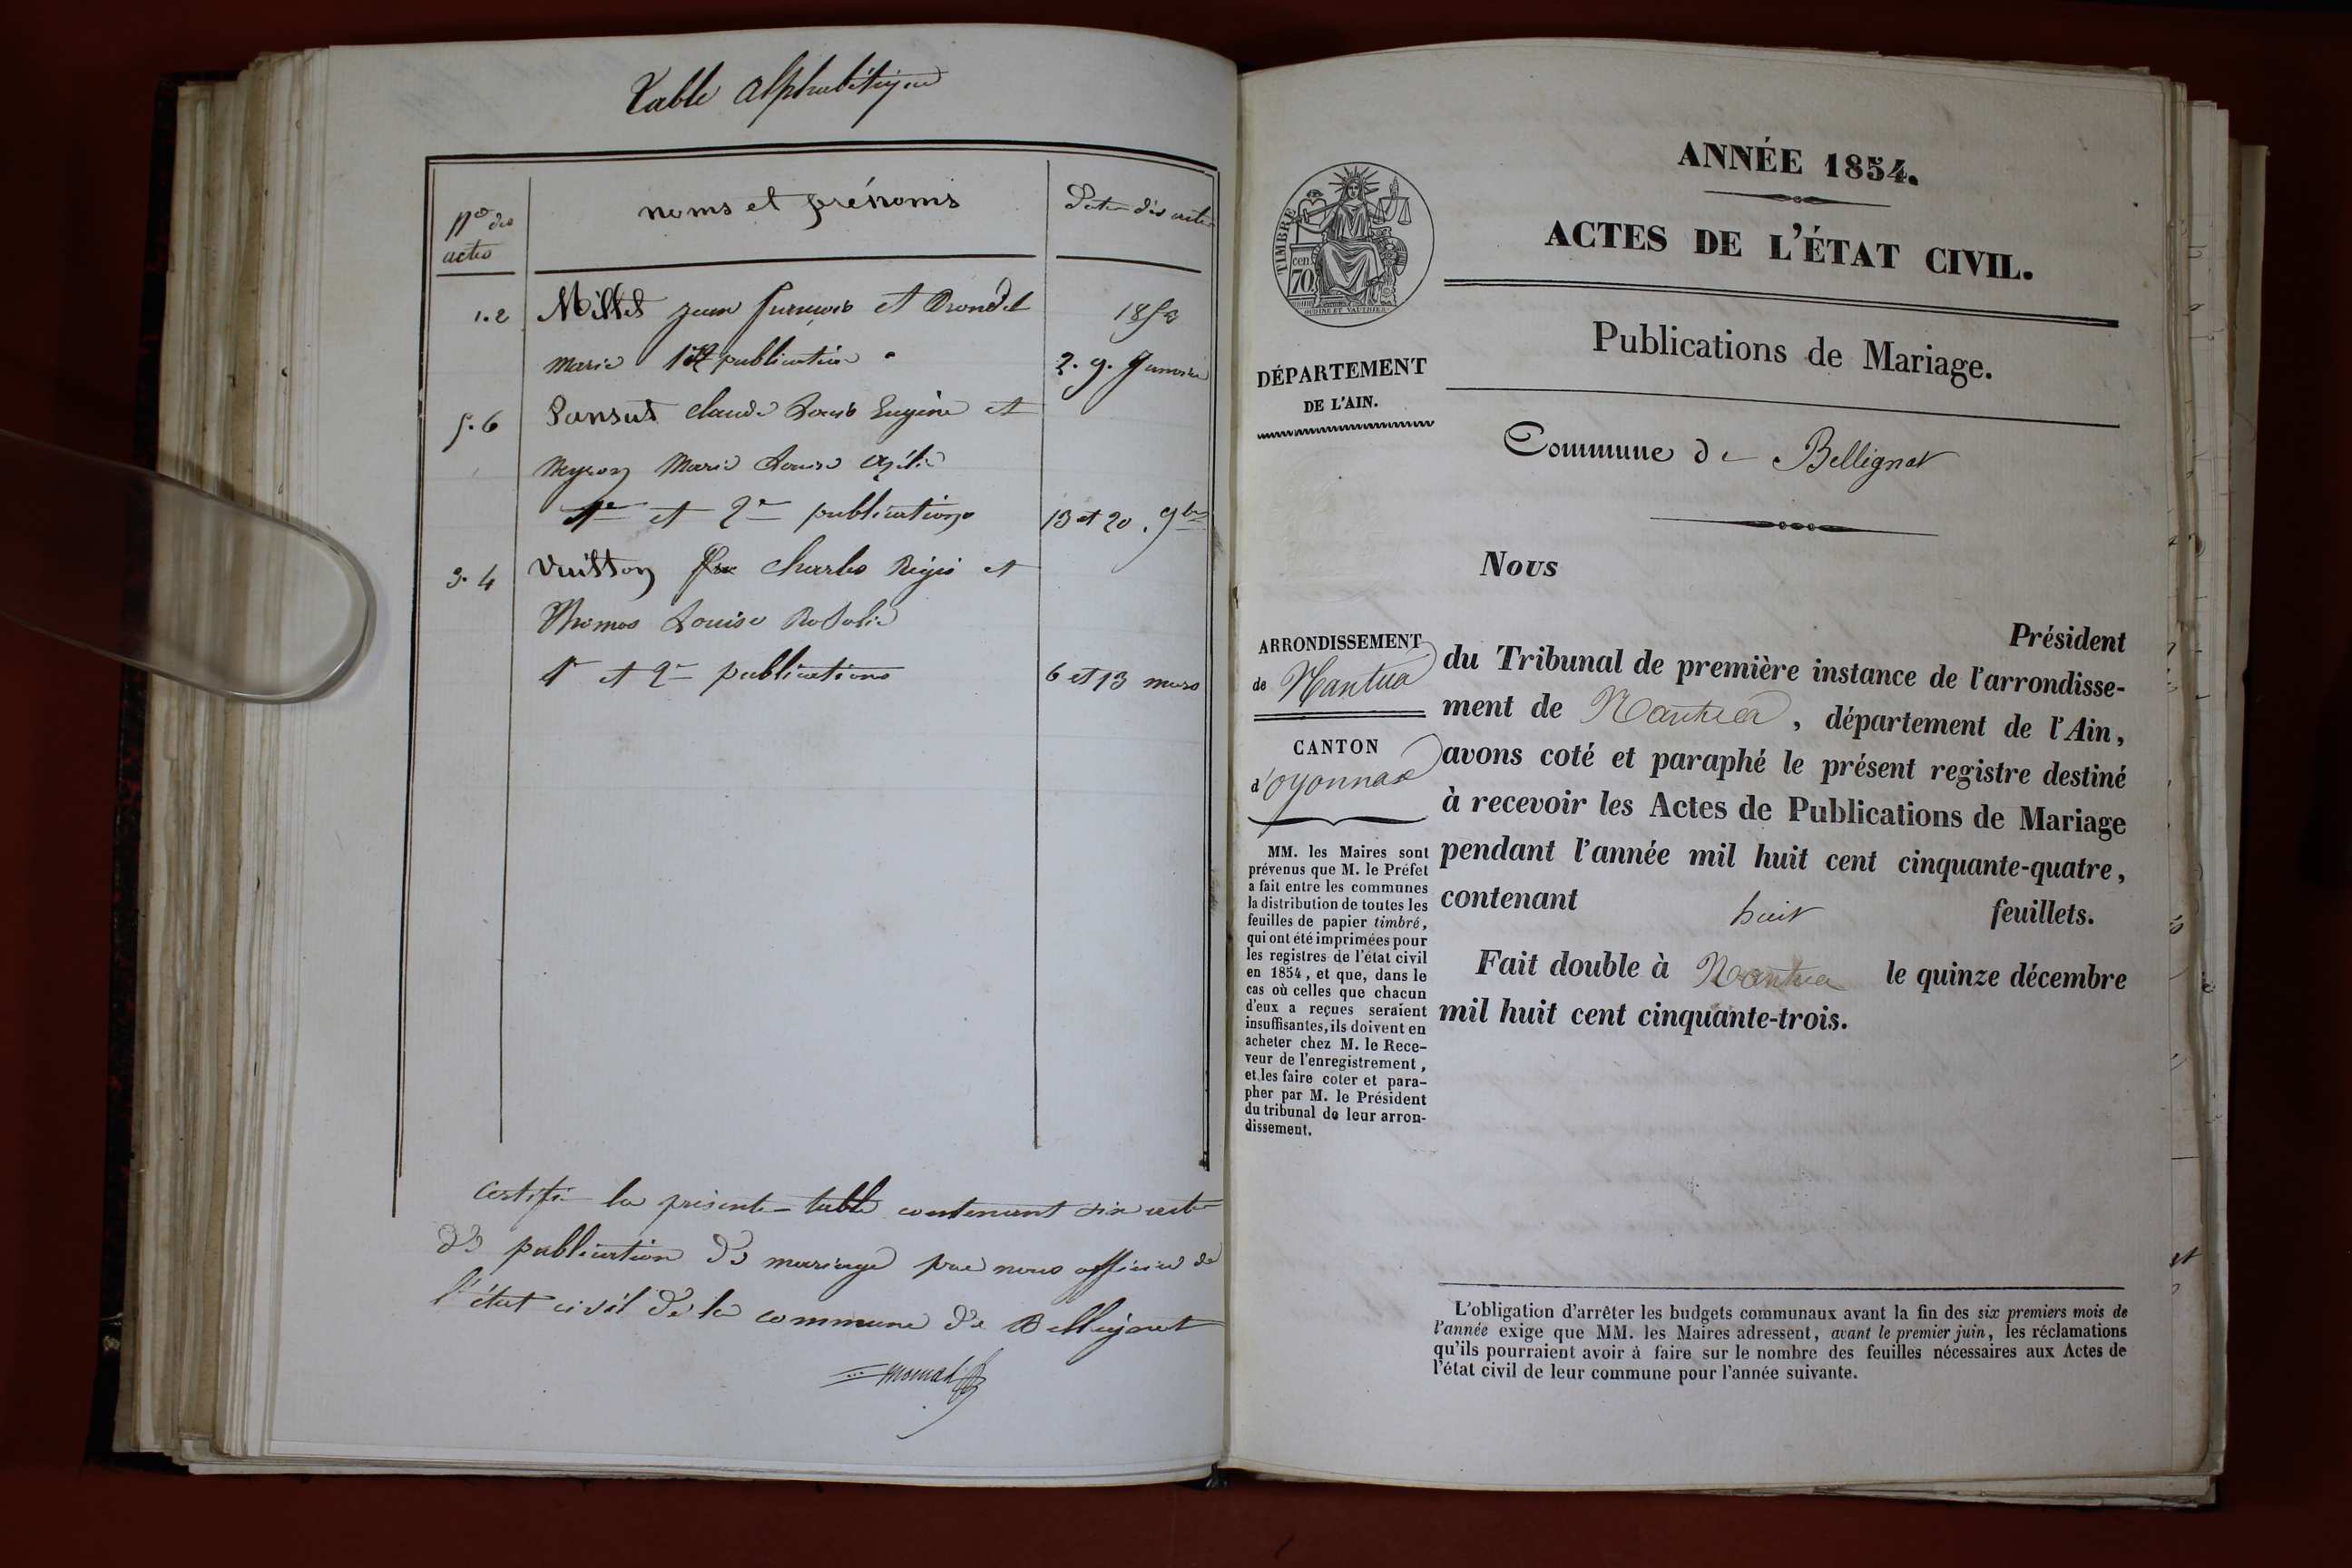 Table alphabétique
Nos des
actes
noms et prénoms
Date des actes
1.2 Millet jean françois et
1853
marie 1re publication
2. 9. Janvier
5.6 claude Louis Eugène et
marie Louise
1re et 2me publications 13 et 20. 9bre
3.4 Vuitton charles Régis et
Thomas Louise Rosalie
1re et 2me publications 6 et 13 mars
Certifié la présente table contenant six actes
de publication de mariage par nous officier de
l'état civil de la commune de Bellignat
ANNÉE 1854.
ACTES DE L'ÉTAT CIVIL.
Publications de Mariage.
TIMBRE
70 cen.
OUDINE ET VAUTHIER
DÉPARTEMENT
DE L'AIN.
Commune de Bellignat
Nous
Président
ARRONDISSEMENT
de Nantua
CANTON
d'oyonnax
du Tribunal de première instance de l'arrondisse-
ment de Nantua, département de l'Ain,
avons coté et paraphé le présent registre destiné
à recevoir les Actes de Publications de Mariage
pendant l'année mil huit cent cinquante-quatre,
contenant huit feuillets.
Fait double à Nantua le quinze décembre
mil huit cent cinquante-trois.
MM. les Maires sont
prévenus que M. le Préfet
a fait entre les communes
la distribution de toutes les
feuilles de papier timbré,
qui ont été imprimées pour
les registres de l'état civil
en 1854, et que, dans le
cas où celles que chacun
d'eux a reçues seraient
insuffisantes, ils doivent en
acheter chez M. le Rece-
veur de l'enregistrement,
et les faire coter et para-
pher par M. le Président
du tribunal de leur arron-
dissement.
L'obligation d'arrêter les budgets communaux avant la fin des six premiers mois de
l'année exige que MM. les Maires adressent, avant le premier juin, les réclamations
qu'ils pourraient avoir à faire sur le nombre des feuilles nécessaires aux Actes de
l'état civil de leur commune pour l'année suivante.